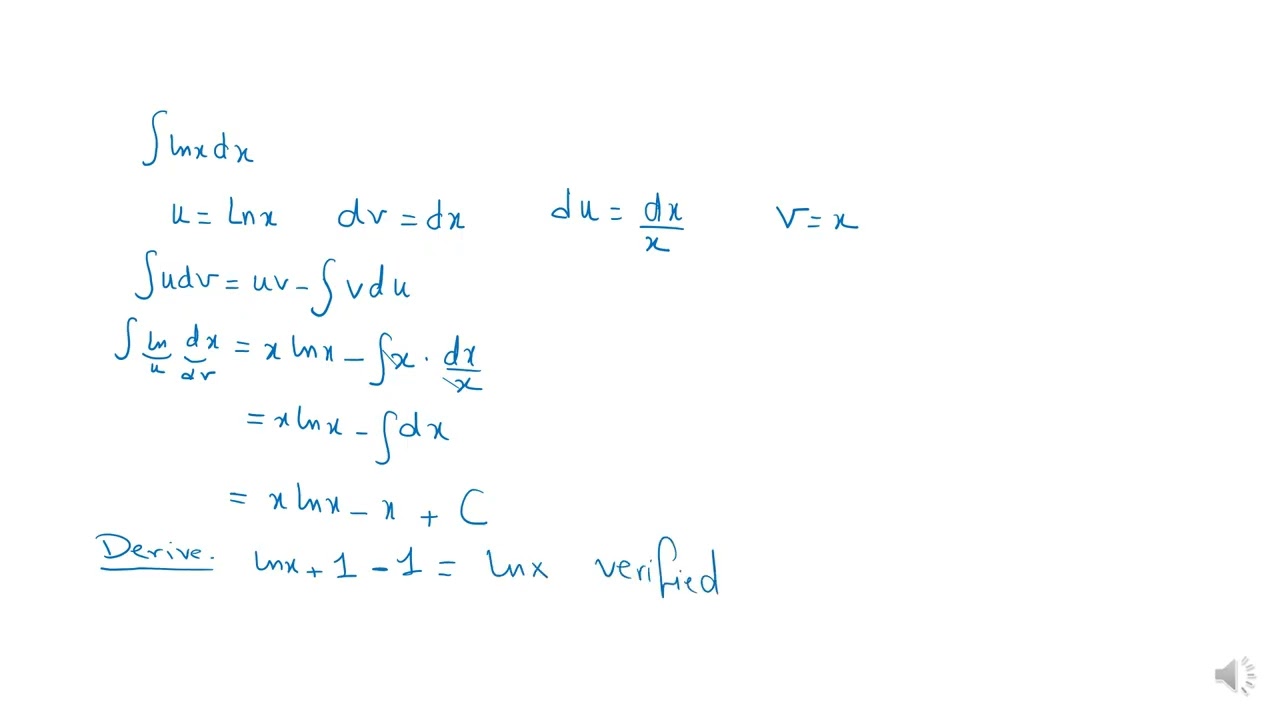 ∫ lnx dx
u = Lnx dv = dx du = dx/x v = x
∫ u dv = uv - ∫ v du
∫ ln dx = x lnx - ∫ x . dx/x
u dv
= x lnx - ∫ dx
= x lnx - x + C
Derive. lnx + 1 - 1 = lnx verified